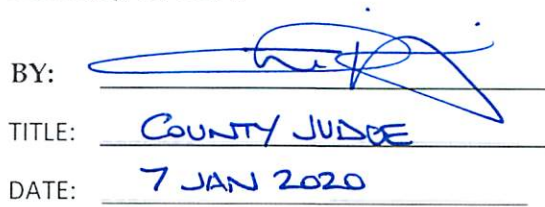 BY:
TITLE: COUNTY JUDGE
DATE: 7 JAN 2020